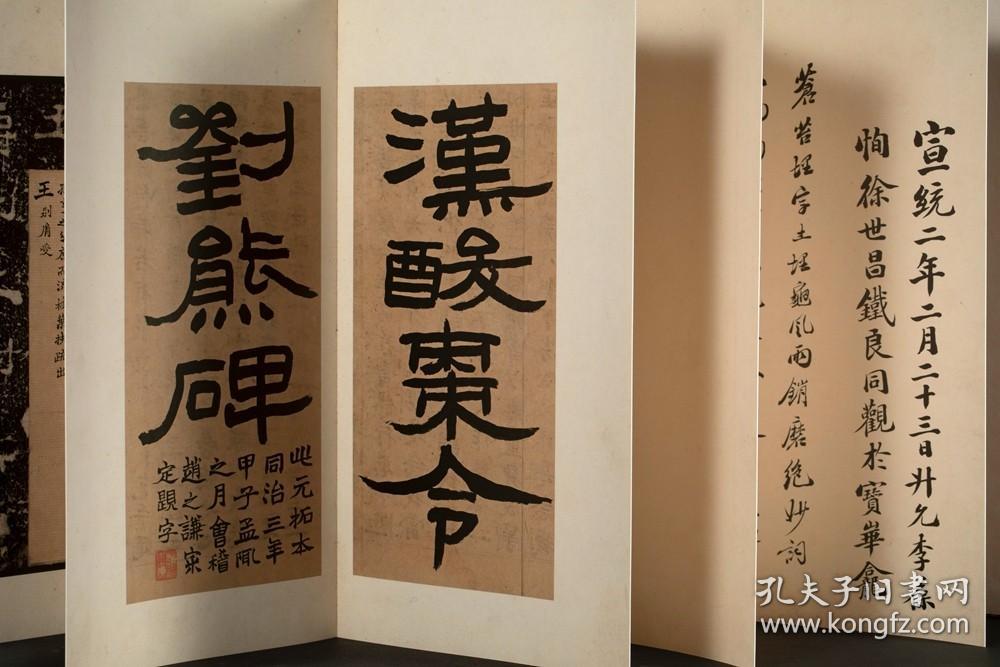 宣統二年二月二十三日升允李葆
恂徐世昌鐵良同觀於寶華龕
蒼苔埋字土埋龜风雨銷磨絶妙詞
漢酸棗令
劉熊碑
此元拓本
同治三年
甲子孟陬
之月會稽
趙之謙宷
定題字
王
孔夫子旧書网
www.kongfz.com